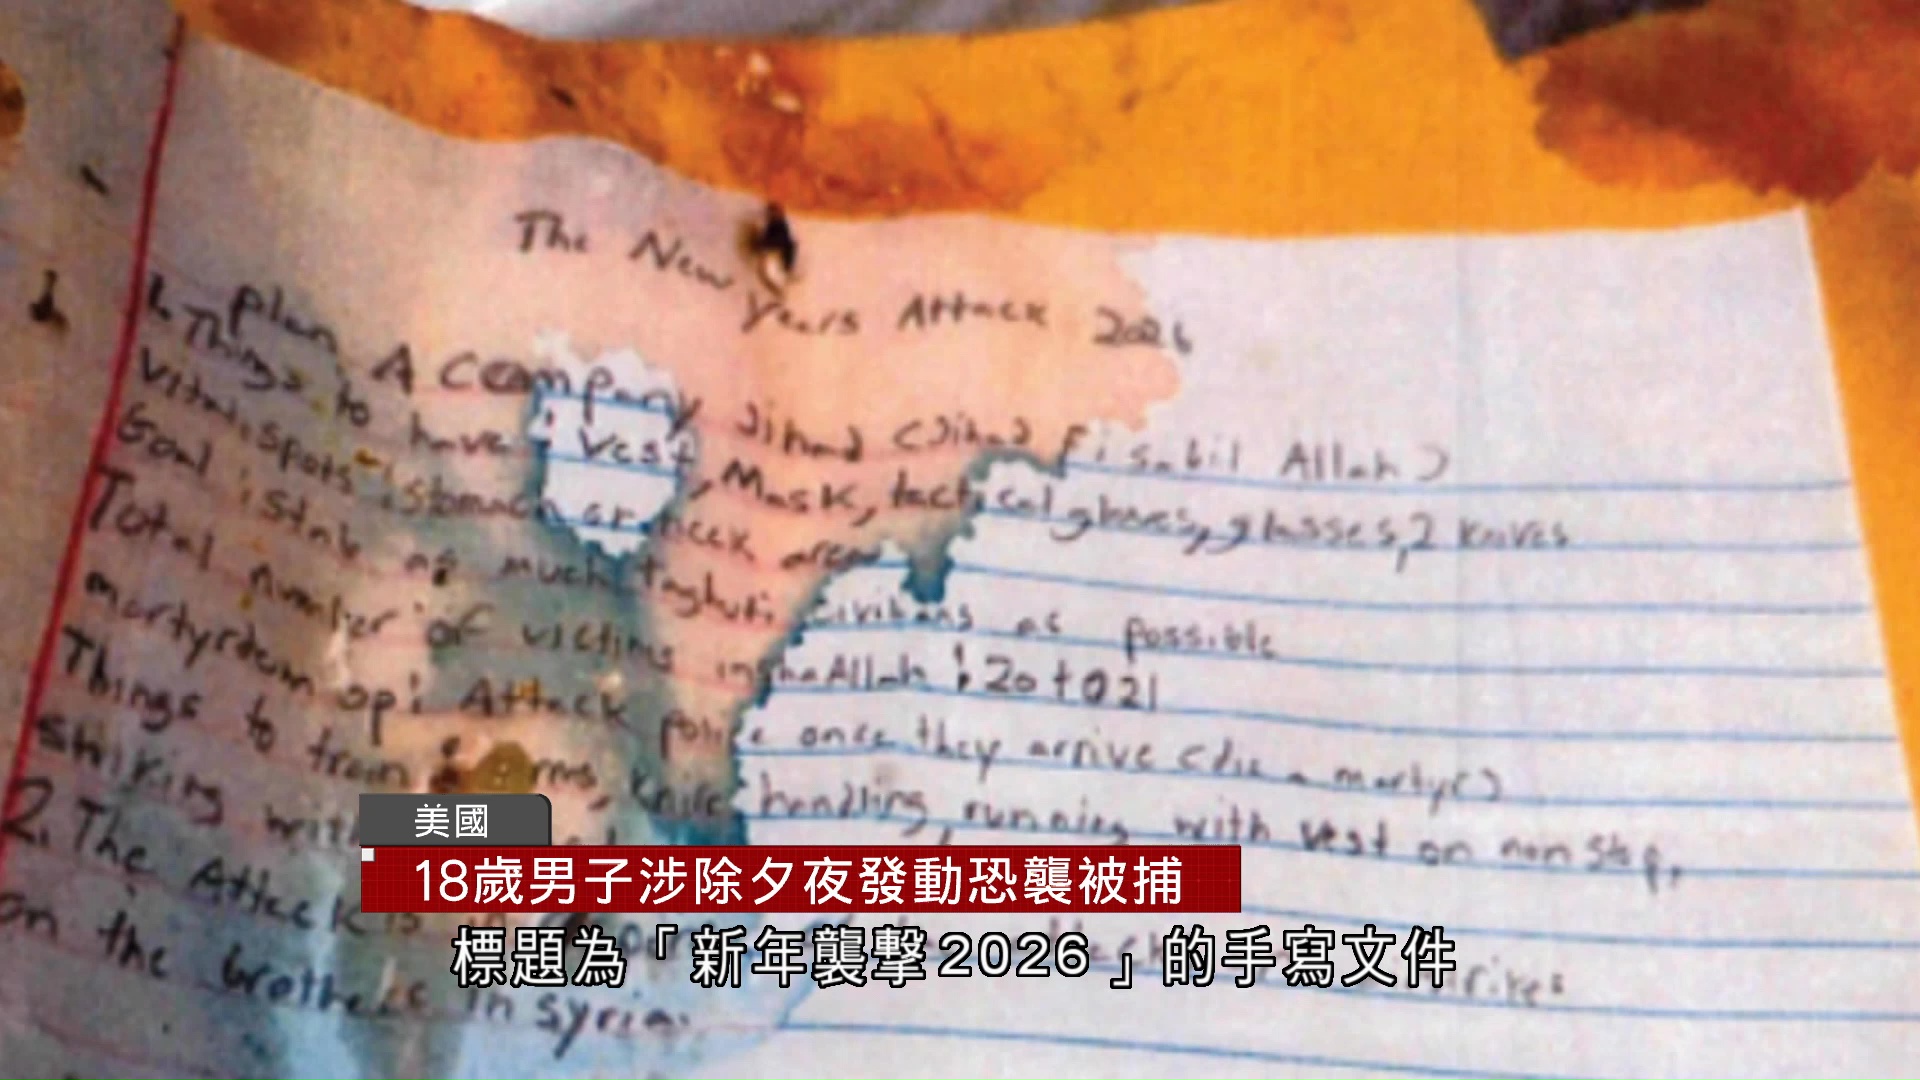 The New Years Attack 2026
Plan A Company Jihad (Jihad fi sabil Allah)
1. Things to have: vest, Mask, tactical gloves, glasses, 2 knives
Vital spots: stomach or neck area
Goal: stab as much taghuti civilians as possible
Total number of victims inshaAllah: 20 to 21
martyrdom op: Attack police once they arrive (die a martyr)
Things to train: knife handling, running with vest on non stop,
striking with
2. The Attack is in strikes
on the brothers in Syria.
美國
18歲男子涉除夕夜發動恐襲被捕
標題為「新年襲擊2026」的手寫文件